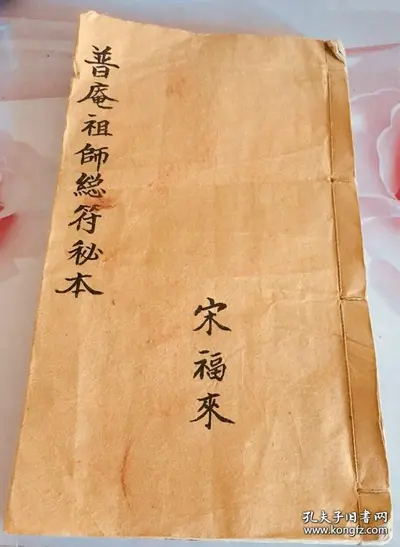 普庵祖師総符秘本
宋福來
孔夫子旧书网
www.kongfz.com